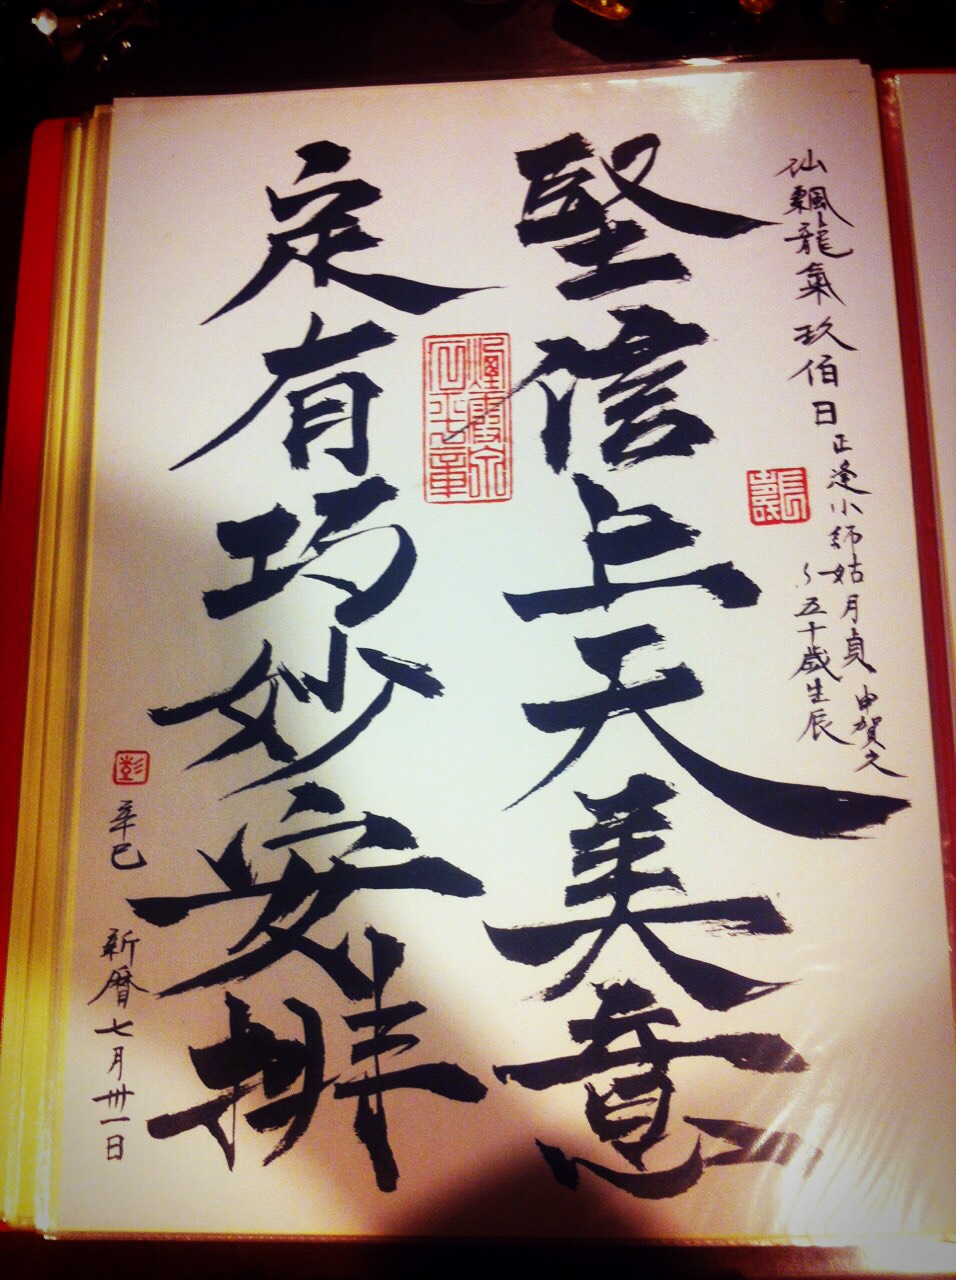 仙飄龍氣玖佰日正逢小師姑月貞申賀之
五十歲生辰
堅信上天美意
定有巧妙安排
辛巳 新曆七月卅一日